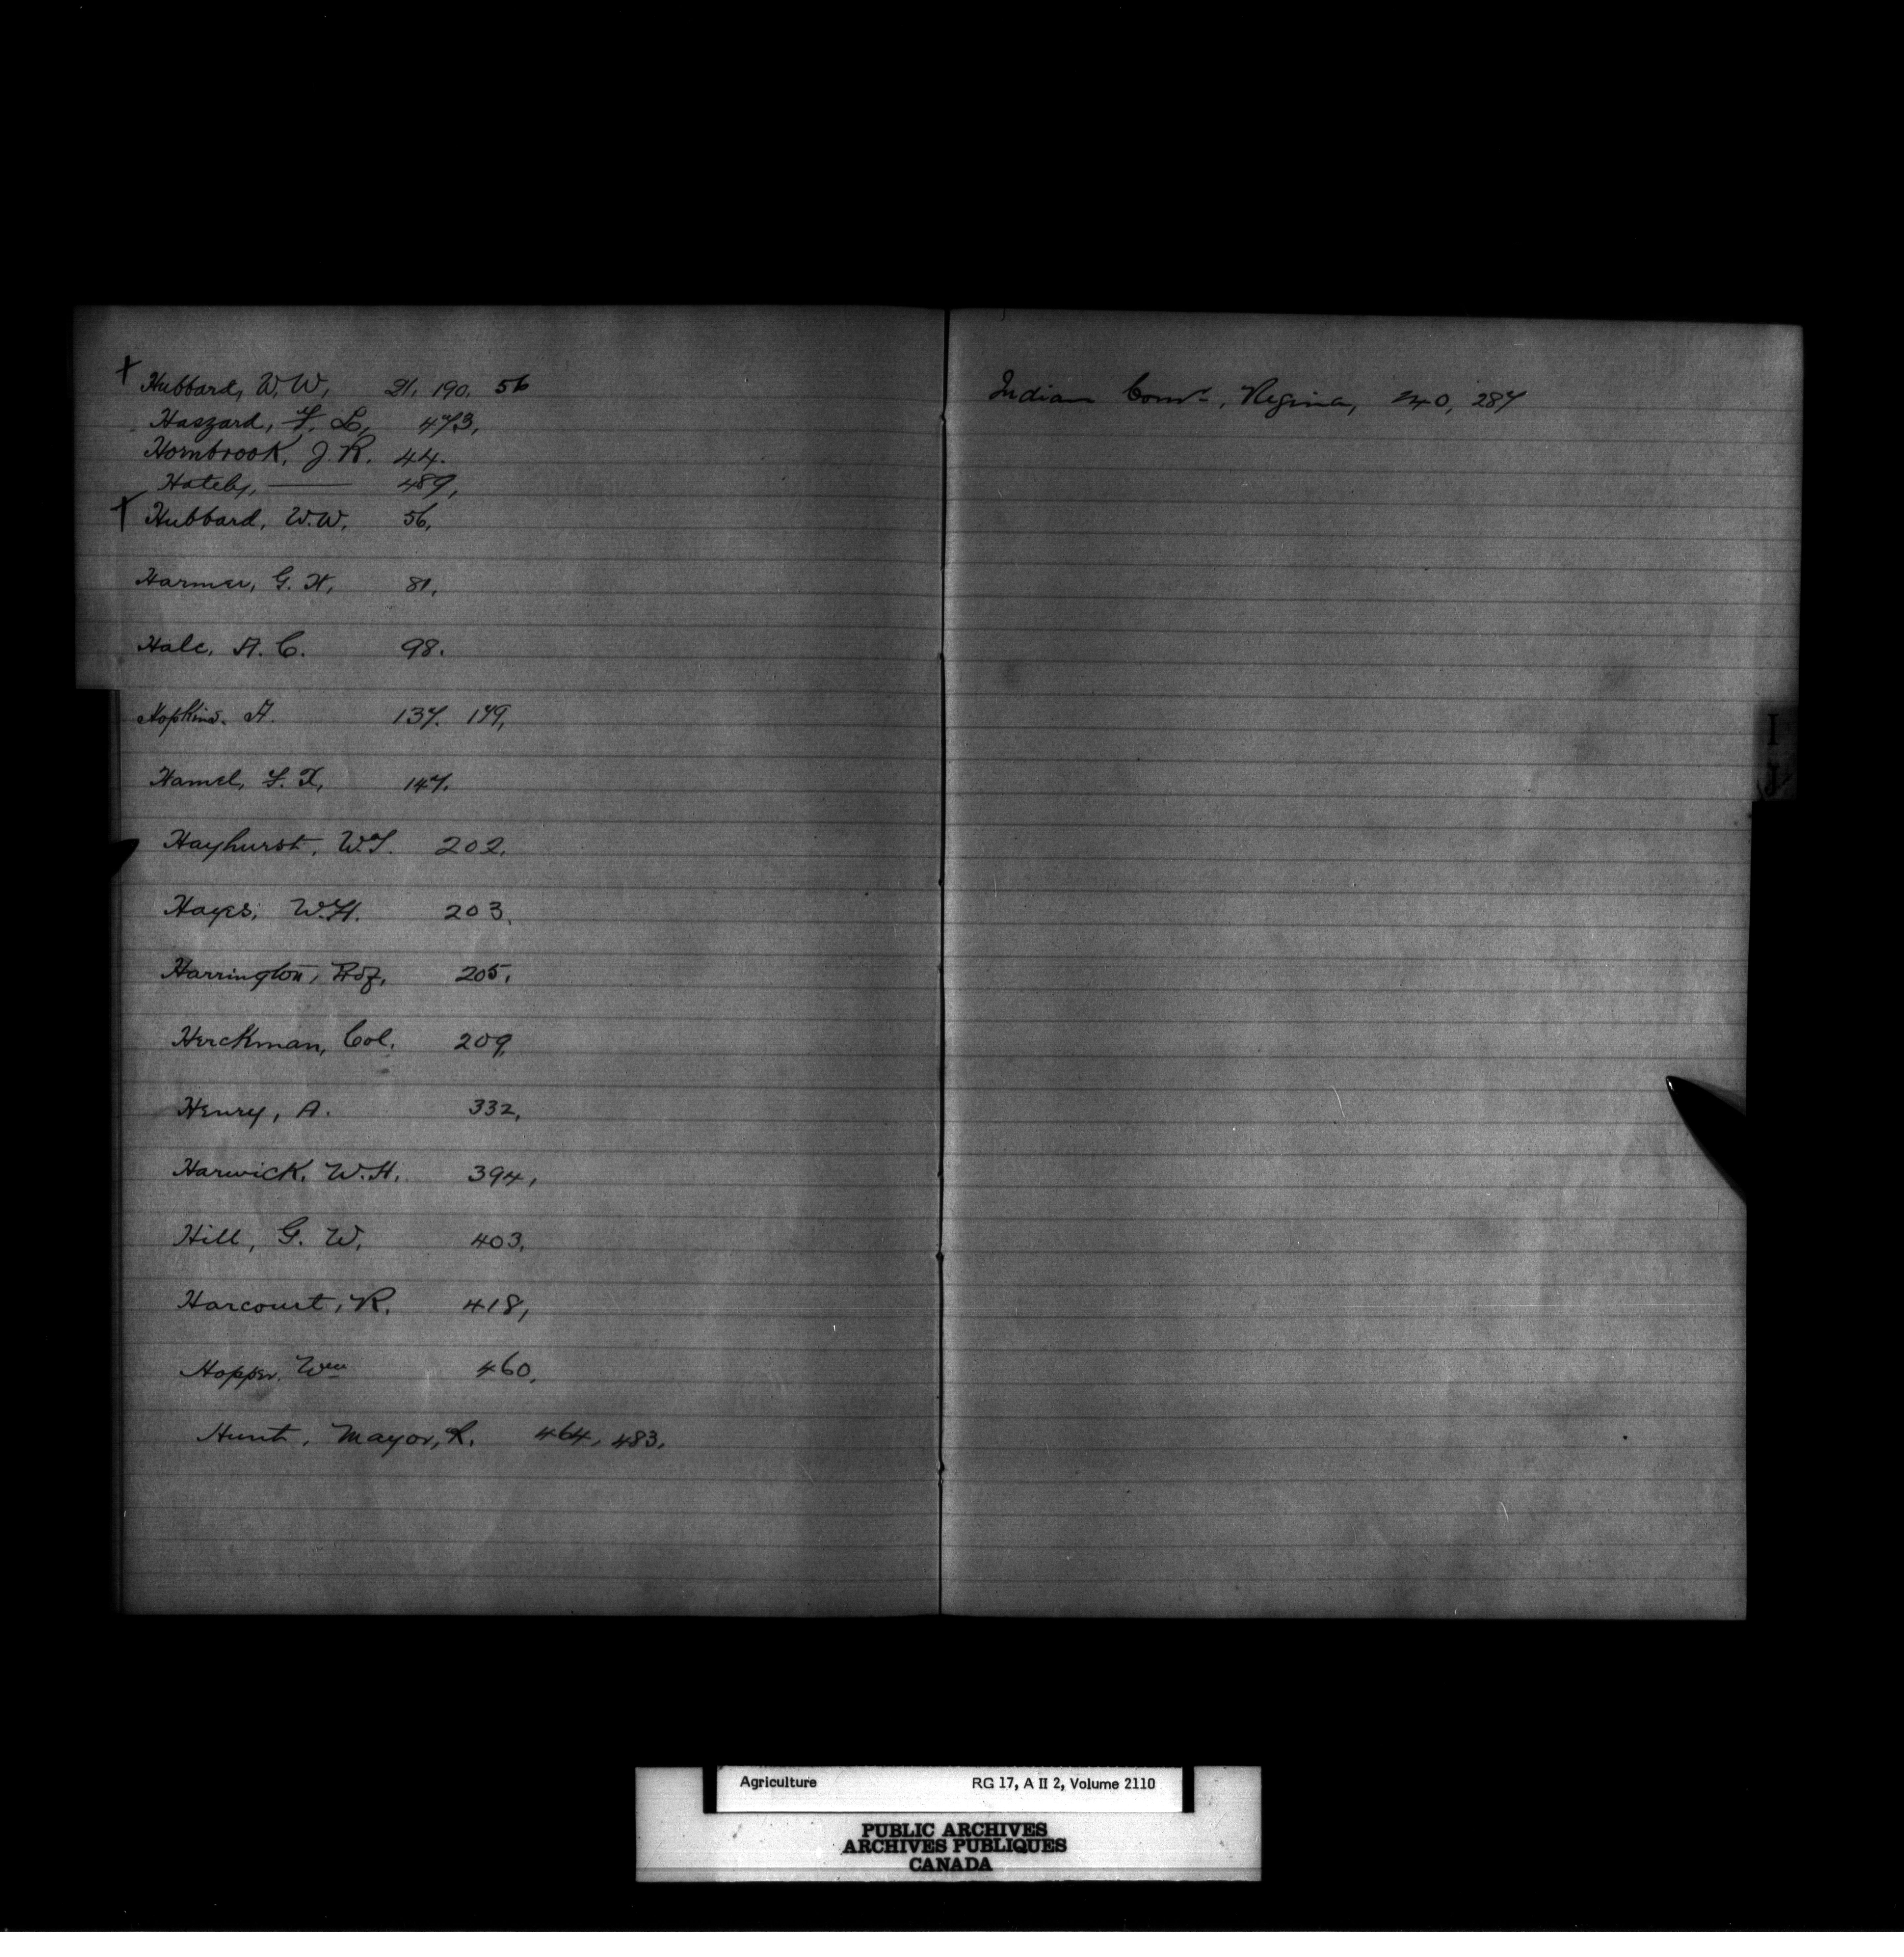 + Hubbard, W. W, 21, 190, 56
Haszard, F. L, 473,
Hornbrook, J. R. 44.
Hately, —— 489,
+ Hubbard, W. W, 56,
Harmer, G. H, 81,
Hale, A. C. 98.
Hopkins. A. 137. 179,
Hamel, F. X, 147.
Hayhurst, W.T. 202,
Hayes, W.H. 203,
Harrington, Prof, 205,
Herckman, Col. 209,
Henry, A. 332,
Harwick, W.H, 394,
Hill, G. W, 403,
Harcourt, R, 418,
Hopper, Wm 460,
Hunt, Mayor, R. 464, 483,
Indian Comr, Regina, 240, 287
I
J
Agriculture RG 17, A II 2, Volume 2110
PUBLIC ARCHIVES
ARCHIVES PUBLIQUES
CANADA